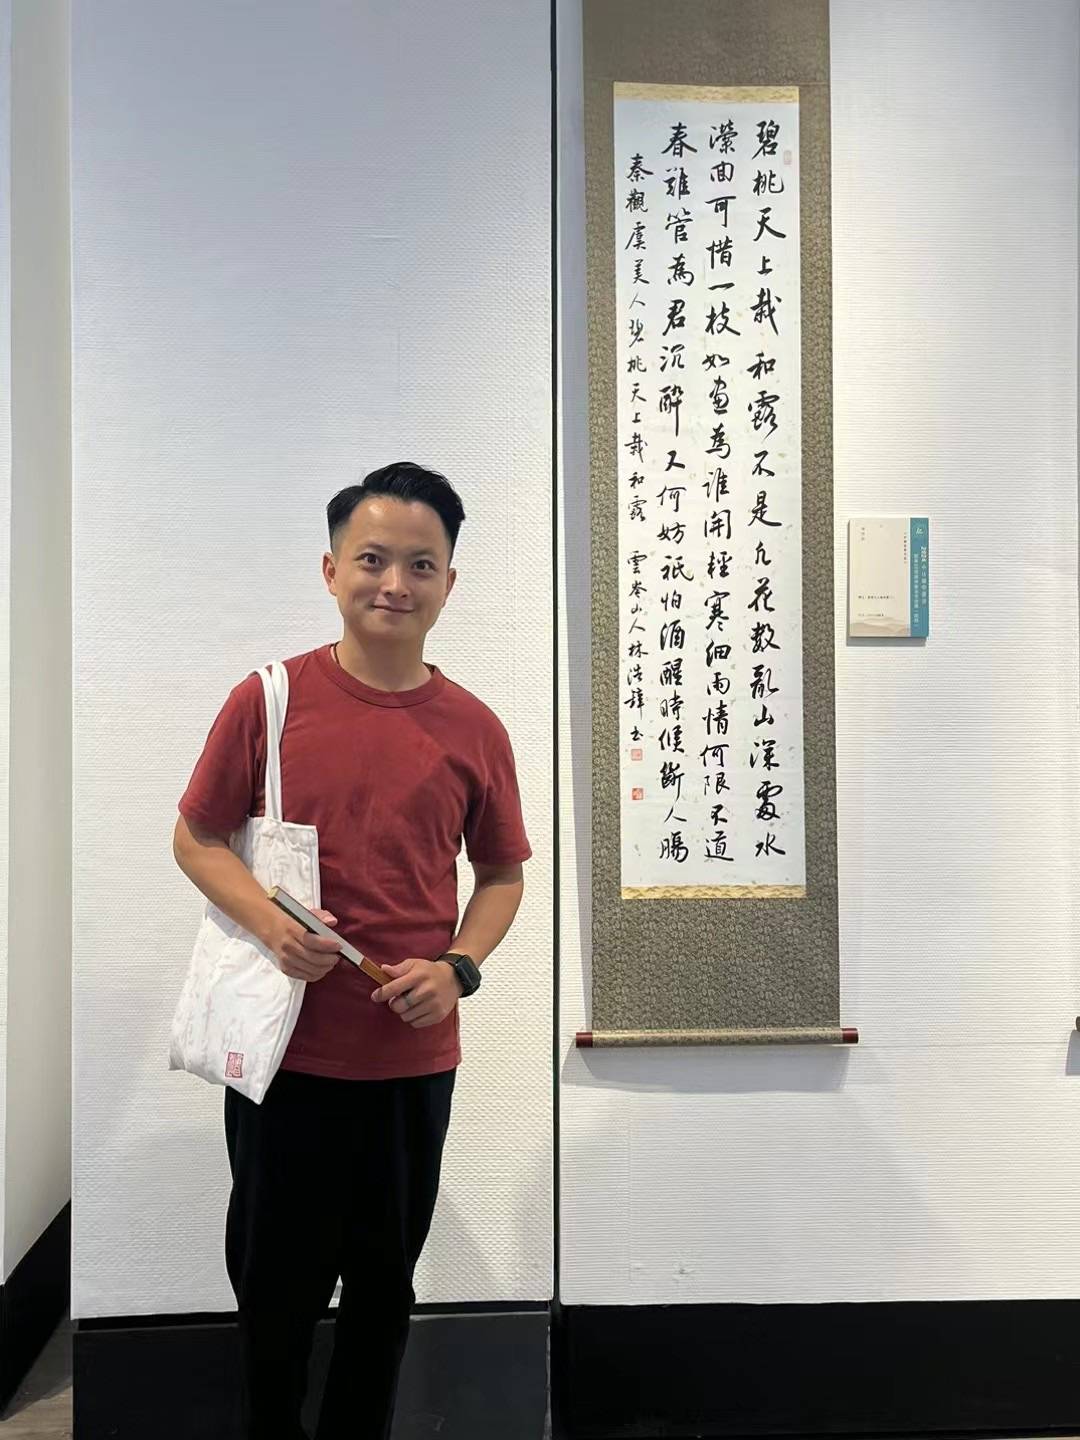 碧桃天上栽和露不是凡花數亂山深處水
瀠回可惜一枝如畫為誰開輕寒細雨情何限不道
春難管為君沉醉又何妨祇怕酒醒時候斷人腸
秦觀虞美人碧桃天上栽和露 雲峯山人林浩鋒書
2024